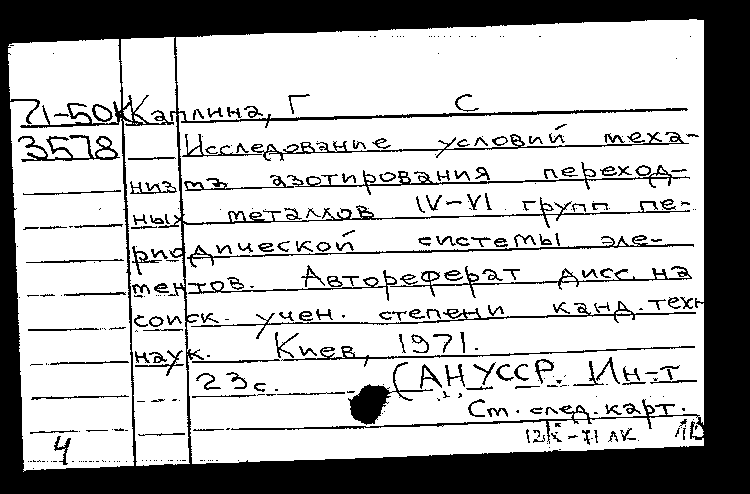 71-50К Каплина, Г С
3578 Исследование условий меха-
низмa азотирования переход-
ных металлов IV-VI групп пе-
риодической системы эле-
ментов. Автореферат дисс. на
соиск. учен. степени канд. техн
наук. Киев, 1971.
23 с. (АН УССР. Ин-т
См. след. карт.
4